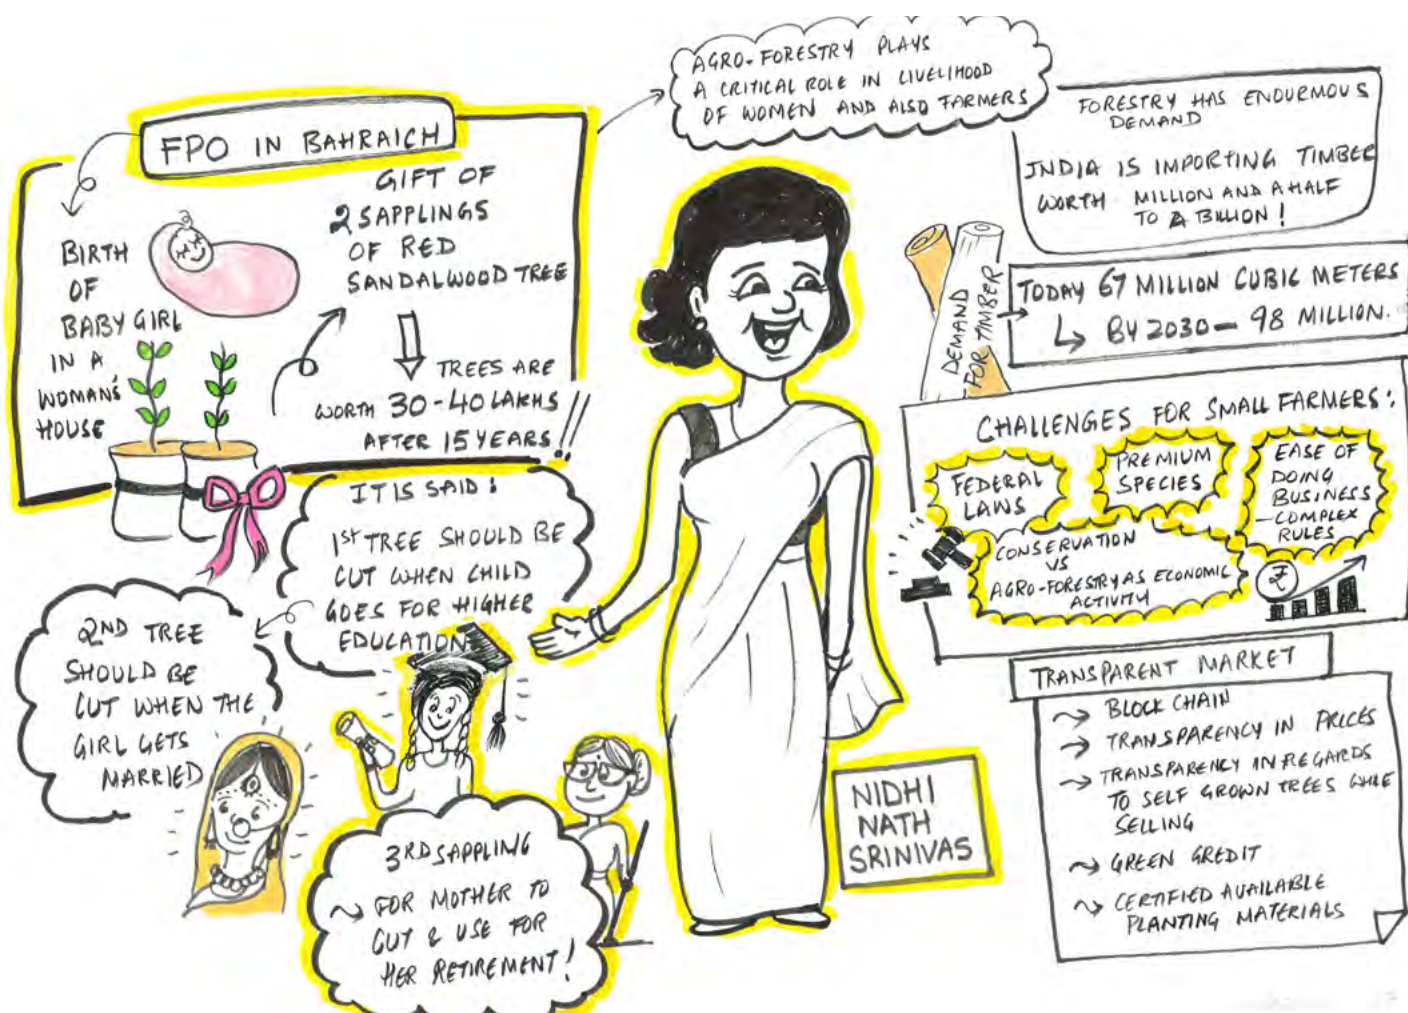 FPO IN BAHRAICH
BIRTH
OF
BABY GIRL
IN A
WOMAN'S
HOUSE
GIFT OF
2 SAPPLINGS
OF RED
SANDALWOOD TREE
TREES ARE
WORTH 30-40 LAKHS
AFTER 15 YEARS!!
IT IS SAID:
1ST TREE SHOULD BE
CUT WHEN CHILD
GOES FOR HIGHER
EDUCATION
2ND TREE
SHOULD BE
CUT WHEN THE
GIRL GETS
MARRIED
3RD SAPPLING
FOR MOTHER TO
CUT & USE FOR
HER RETIREMENT!
AGRO-FORESTRY PLAYS
A CRITICAL ROLE IN LIVELIHOOD
OF WOMEN AND ALSO FARMERS
NIDHI
NATH
SRINIVAS
FORESTRY HAS ENOURMOUS
DEMAND
INDIA IS IMPORTING TIMBER
WORTH MILLION AND A HALF
TO A BILLION!
DEMAND
FOR TIMBER
TODAY 67 MILLION CUBIC METERS
BY 2030 - 98 MILLION.
CHALLENGES FOR SMALL FARMERS:
FEDERAL
LAWS
PREMIUM
SPECIES
EASE OF
DOING
BUSINESS
- COMPLEX
RULES
CONSERVATION
VS
AGRO-FORESTRY AS ECONOMIC
ACTIVITY
₹
TRANSPARENT MARKET
BLOCK CHAIN
TRANSPARENCY IN PRICES
TRANSPARENCY IN REGARDS
TO SELF GROWN TREES WHILE
SELLING
GREEN CREDIT
CERTIFIED AVAILABLE
PLANTING MATERIALS